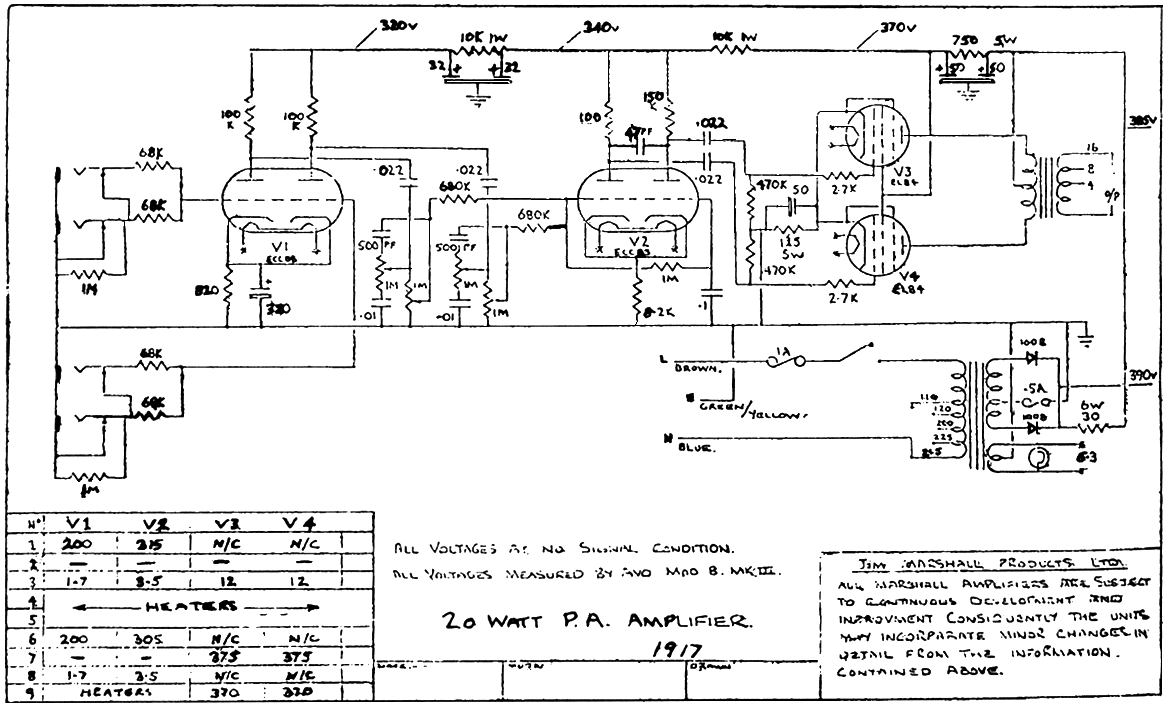 320v
340v
370v
10K 1W
10K 1W
750 5W
32 + + 32
+ 50 + 50
100 K
100 K
100
150 K
47 PF
.022
.022
385v
68K
68K
.022
.022
680K
680K
470K
50
2.7K
V3
EL84
16
8
4
O/P
V1
ECC83
500 PF
500 PF
V2
ECC83
125
5W
1M
820
1M
1M
1M
1M
1M
8.2K
.1
470K
2.7K
V4
EL84
.01
.01
68K
68K
1M
L BROWN.
1A
E GREEN/YELLOW.
N BLUE.
110
120
200
225
245
.5A
390v
6W
30
6.3
No V1 V2 V3 V4
1 200 315 N/C N/C
2 — — — —
3 1.7 3.5 12 12
4 HEATERS
5
6 200 305 N/C N/C
7 — — 375 375
8 1.7 3.5 N/C N/C
9 HEATERS 370 370
ALL VOLTAGES AT NO SIGNAL CONDITION.
ALL VOLTAGES MEASURED BY AVO MOD 8. MK III.
20 WATT P.A. AMPLIFIER.
1917
DRAWN
JIM MARSHALL PRODUCTS LTD.
ALL MARSHALL AMPLIFIERS ARE SUBJECT
TO CONTINUOUS DEVELOPMENT AND
IMPROVMENT CONSIQUENTLY THE UNITS
MAY INCORPARATE MINOR CHANGES IN
DETAIL FROM THE INFORMATION.
CONTAINED ABOVE.